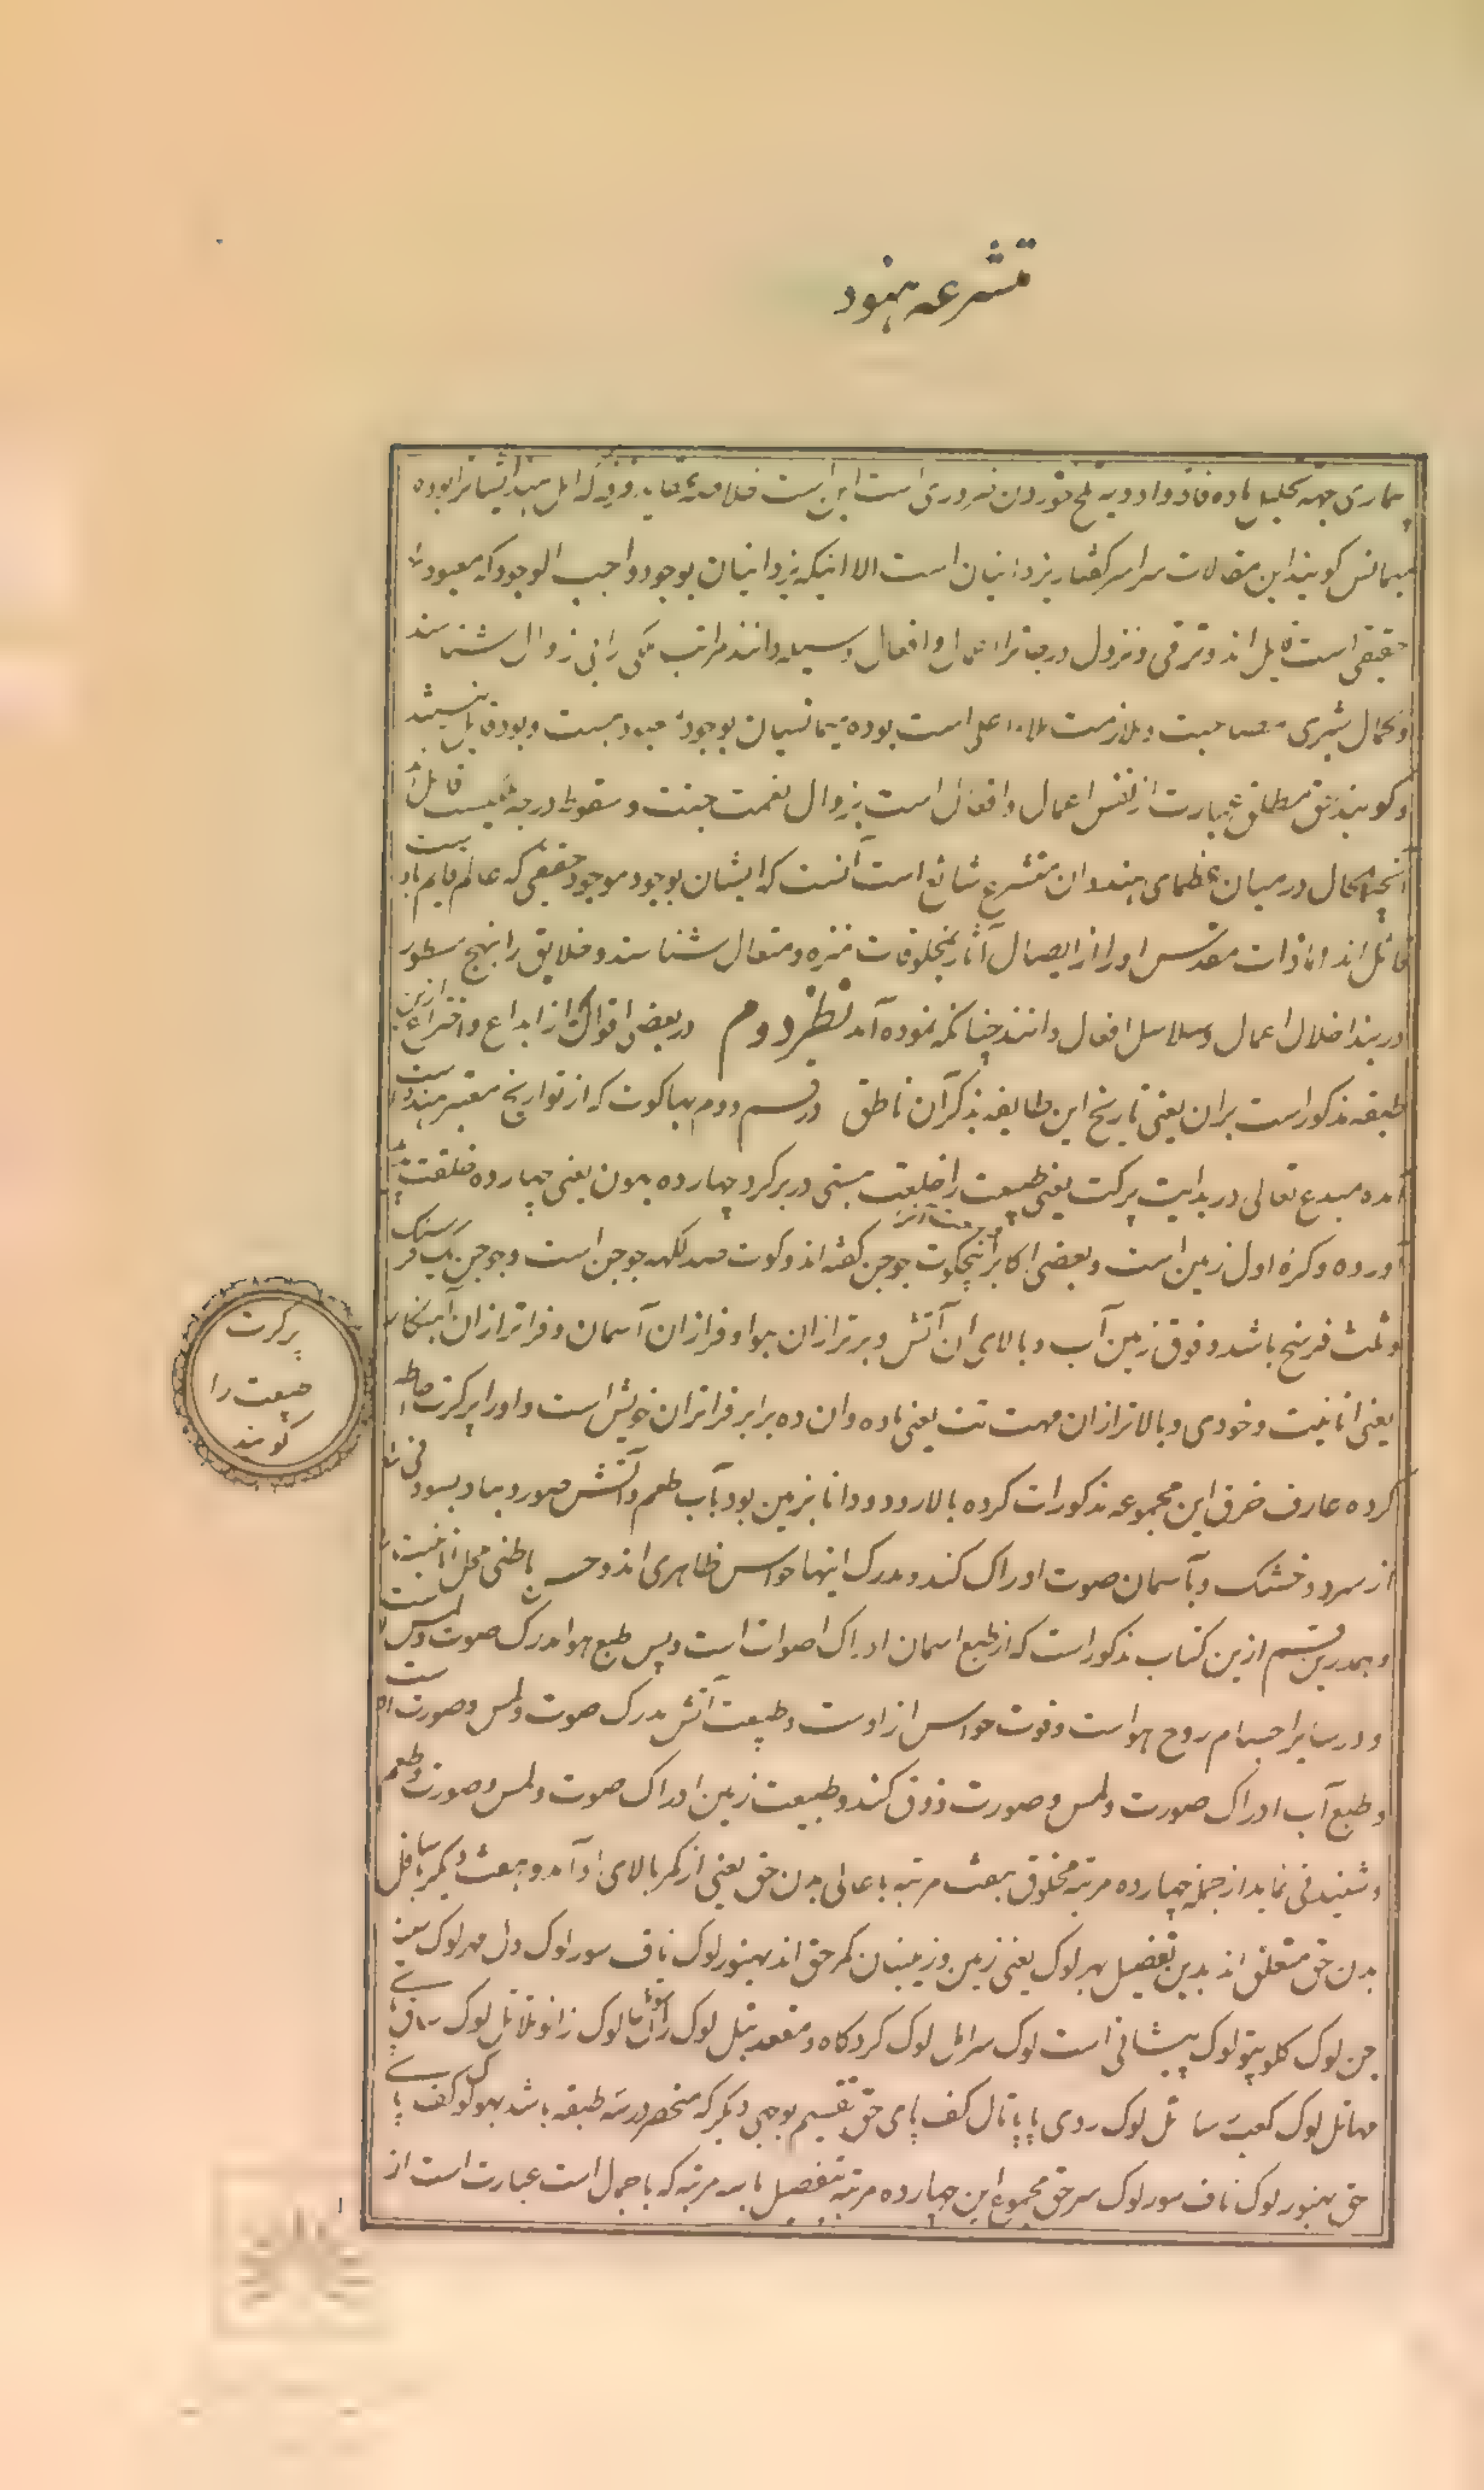 متشرعه هنود
بیماری جهة تحلیل ماده فاد و ادویه تلخ خوردن ضروری است این است خلاصه عقاید فرقه که اهل هند ایشانرا بوده
میمانس کویند این مقالات سراسر کفتار یزدانیان است الا اینکه یزدانیان بوجود واجب الوجود که معبود
حقیقی است قایل اند و ترقی و نزول درجات را اعمال و افعال وسیله دانند مراتب ملکی را بی زوال شناسند
و کمال بشری مصاحبت و ملازمت ملاء اعلی است بوده میمانسیان بوجود معبود هست و بود قایل نیستند
و کویند حق مطلق عبارت از نفس اعمال و افعال است بزوال نعمت جنت و سقوط درجه قایل
آنچه الحال در میان عظمای هندوان متشرع شائع است آنست که ایشان بوجود موجود حقیقی که عالم قایم باوست
قائل اند و اما ذات مقدس او را از ایصال آثار بمخلوقات منزه و متعال شناسند و خلایق را بنهج مسطور
در بند اغلال اعمال و سلاسل افعال دانند چنانکه نموده آمد نظر دوم در بعضی اقوال که از ابداع و اختراع ازین
طبقه مذکور است بران یعنی تاریخ این طایفه بذکر آن ناطق در قسم دوم بهاکوت که از تواریخ معتبر هندوست
آمده مبدع تعالی در بدایت پرکت یعنی طبیعت را خلعت هستی در بر کرد چهارده بهون یعنی چهارده خلقت
آورده و کره اول زمین است و بعضی اکابر پنچکوت جوجن کفته اند و کوت صد لکهه جوجن است و جوجن یک فرسنک
و ثلث فرسخ باشد و فوق زمین آب و بالای آن آتش و برتر از ان هوا و فراز ان آسمان و فراتر از ان
یعنی انانیت و خودی و بالاتر از ان مهت تت یعنی ماده و ان ده برابر فراتران خویش است و او را پرکرت احاطه
کرده عارف خرق این مجموعه مذکورات کرده بالا رود و دانا بزمین بود بآب طعم و آتش صور و بباد بسودنی
از سرد و خشک و بآسمان صوت ادراک کند و مدرک اینها حواس ظاهری اند و حس باطنی محل انانیت است
و بهمدرین قسم ازین کتاب مذکور است که از طبع اسمان ادراک اصوات است و پس طبع هوا مدرک صوت و لمس
و در سایر اجسام روح هواست و قوت حواس از اوست و طبیعت آتش مدرک صوت و لمس و صورت است
و طبع آب ادراک صورت و لمس و صورت ذوق کند و طبیعت زمین ادراک صوت و لمس و صورت و طعم
و شنیدنی نماید از جمله چهارده مرتبه مخلوق بهفت مرتبه باعالی بدن حق یعنی از کمر بالای او آمد و بهفت دیکر باسافل
بدن حق متعلق اند بدین تفصیل بهرلوک یعنی زمین و زمینیان کمر حق اند بهنورلوک ناف سورلوک دل مهرلوک سینه
جن لوک کلو تپولوک پیشانی است لوک سر اتل لوک کرد کاه و مقعد بتل لوک ران لوک زانو تلاتل لوک ساق
مهاتل لوک کعبت رساتل لوک روی پا پاتال کف پای حق تقسیم بوجهی دیکر که منحصر در سه طبقه باشد بهولوک کف پای
حق بهنورلوک ناف سورلوک سر حق مجموع این چهارده مرتبه بتفصیل با سه مرتبه که باجمال است عبارت است از
پرکرت
طبیعت را
کویند